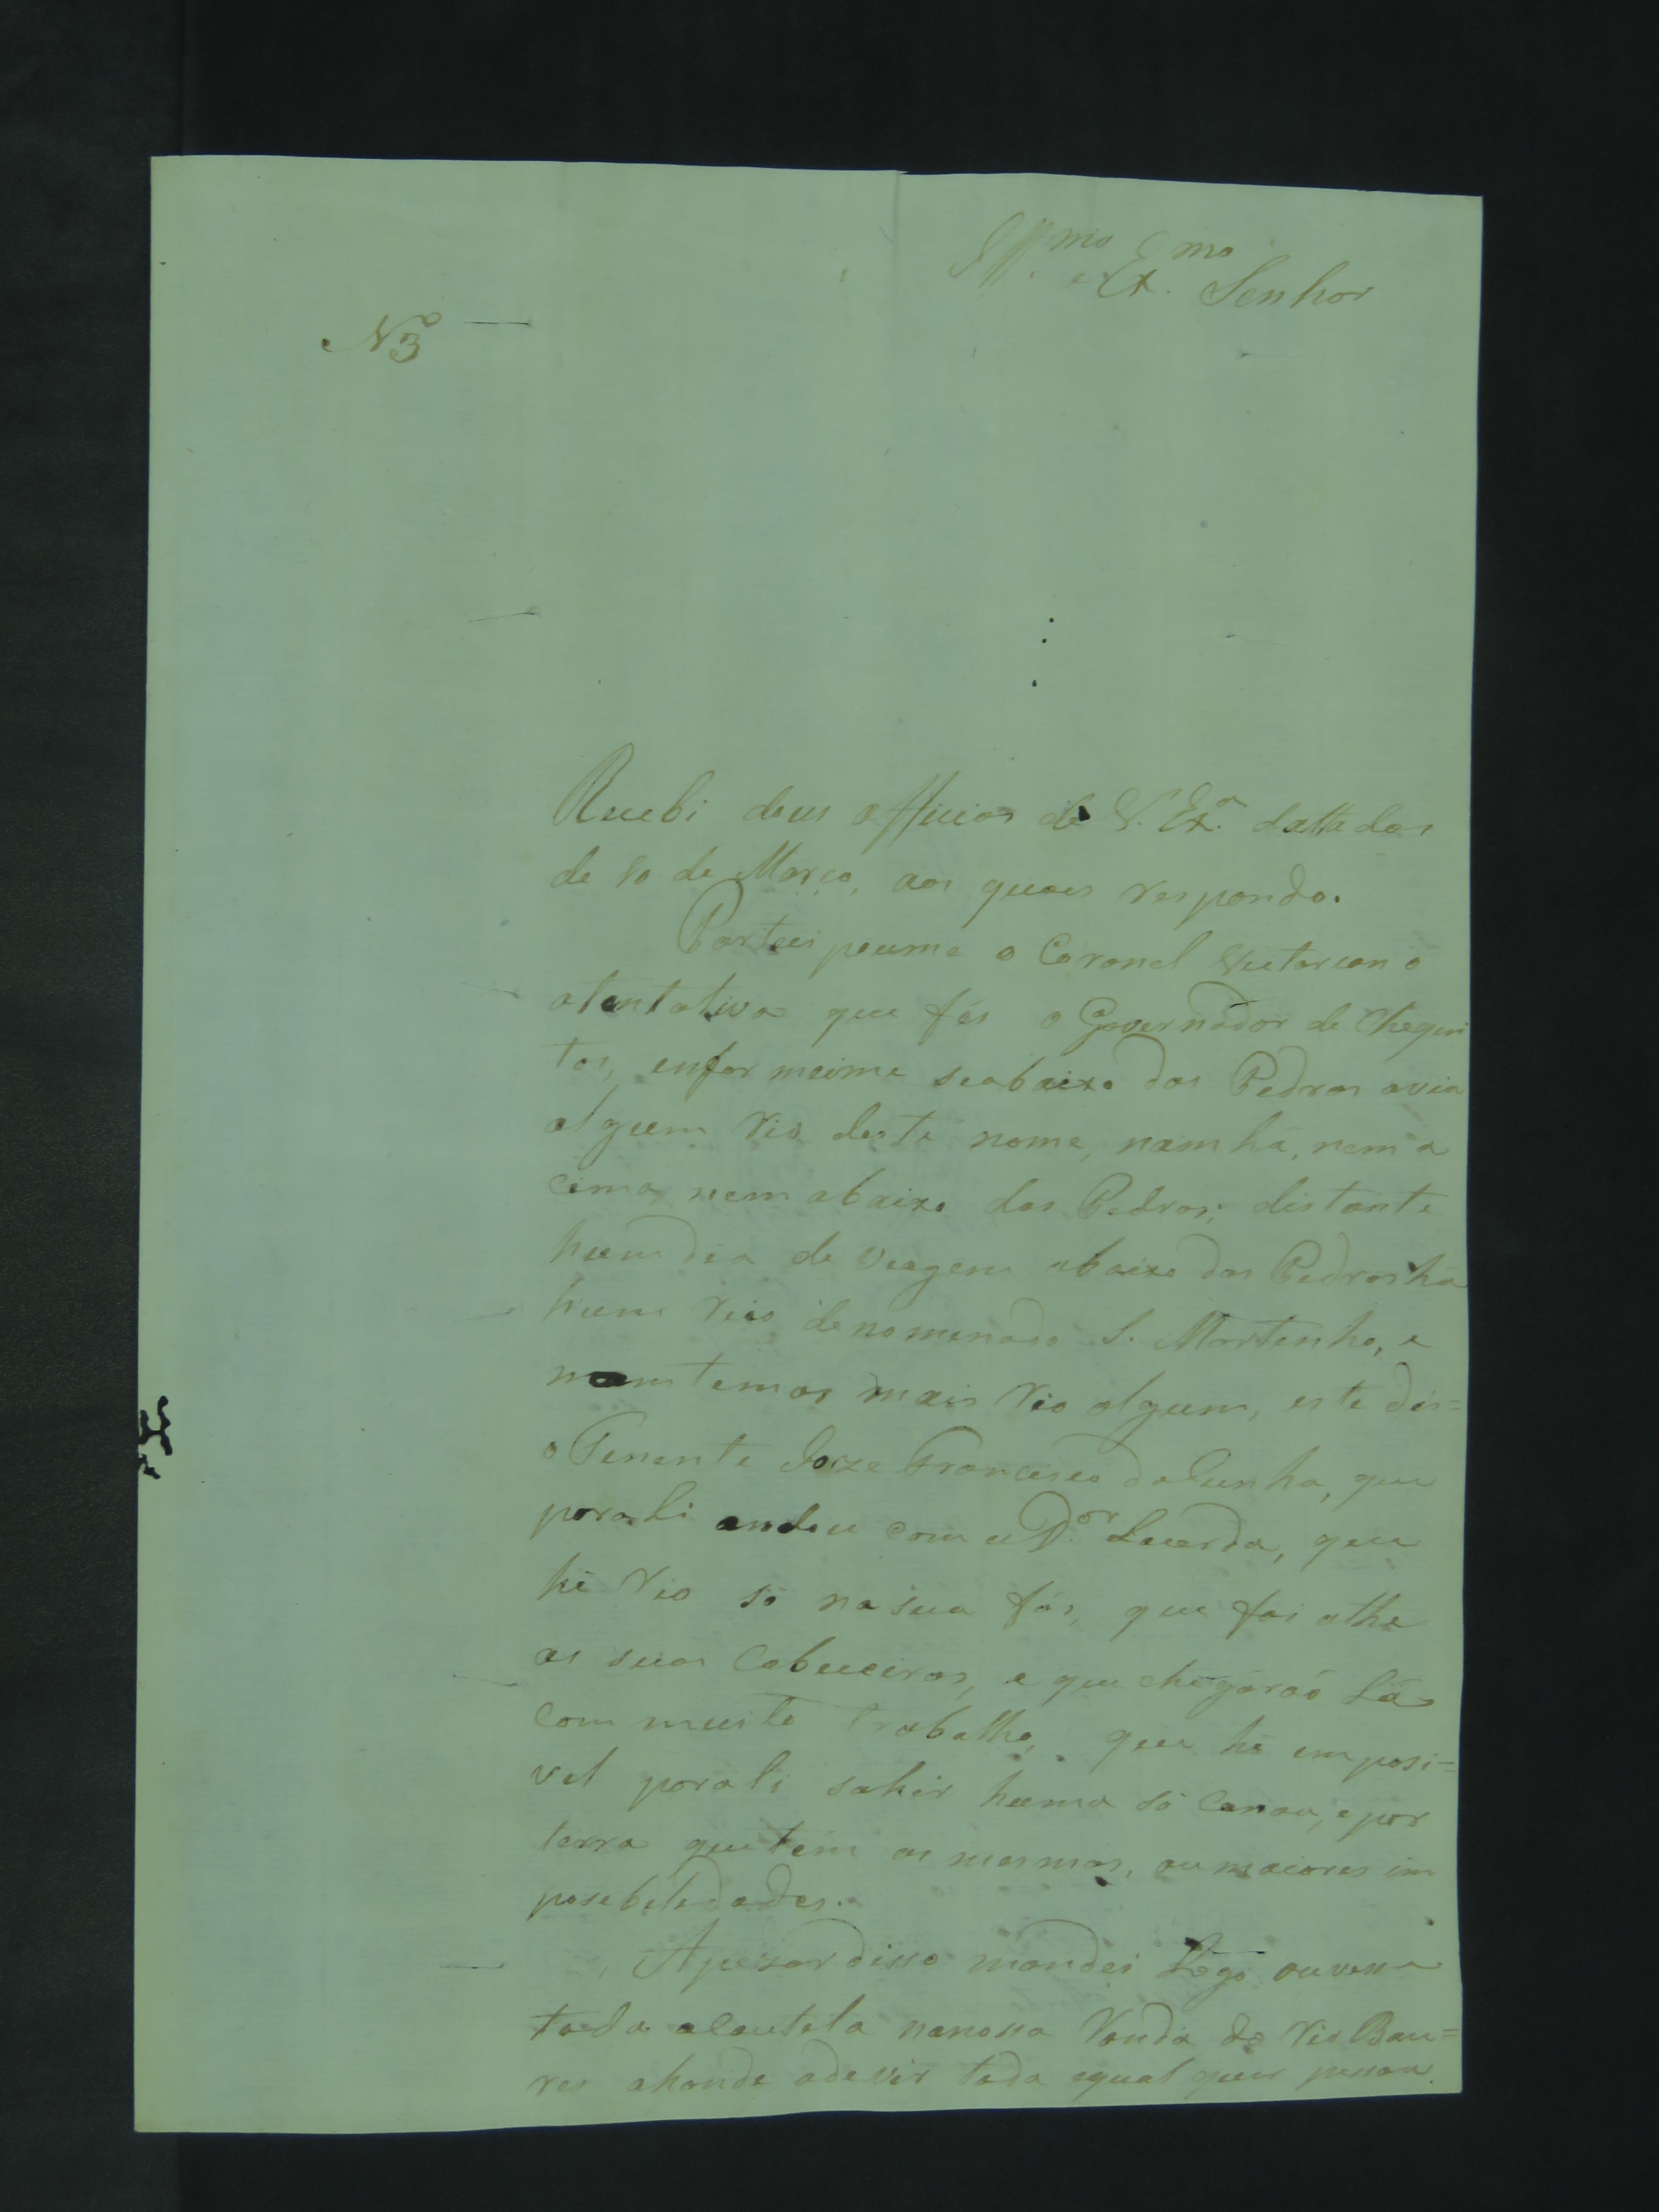 Ill.mo e Ex.mo Senhor
No 3
Recebi dous officios de V. Ex.a dattados
de 10 de Março, aos quaes respondo.
Partecipoume o Coronel Victorcano
atentativa que fás o Governador de Chequi
tos, enformeime seabaixo das Pedras avia
algum Rio deste nome, nam há, nem a
cima nem abaixo das Pedras; distante
hum dia de viagem abaixo das Pedras há
hum Rio denomenado S. Martinho, e
nam temos mais Rio algum, este dis=
o Tenente Joze Francisco da Cunha, que
porali andou com o D.or Lacerda, que
hé Rio só na sua fós, que foi athe
as suas Cabeceiras, e que chegáraó Lá
com muito trabalho, que hé emposi=
vel porali sahir huma só Canoa, e por
terra que tem as mesmas, ou maiores im
posebeledades.
Apezar disso mandei Logo ouvesse
toda acautela nanossa Ronda do Rio Bau=
res ahonde adevir toda equal quer pessoa.